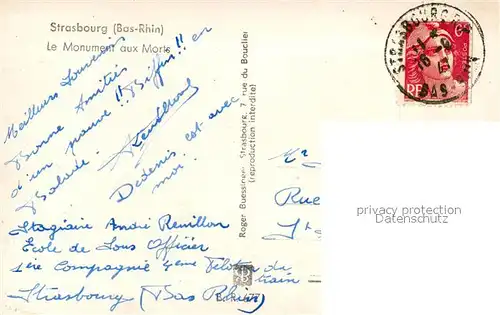 Strasbourg (Bas-Rhin)
Le Monument aux Morts
Meilleurs Souvenirs
Bonne Amitiés
d'un pauvre !! Biffin !! en
Balade.
est avec
moi.
Stagiaire André Remillon
Ecole de Sous Officier
1ère Compagnie 4eme Peloton du train
Strasbourg (Bas Rhin)
Roger Buessinger, Strasbourg, 7 rue du Bouclier
(reproduction interdite)
STRASBOURG
BAS-RHIN
RF
Rue
privacy protection
Datenschutz